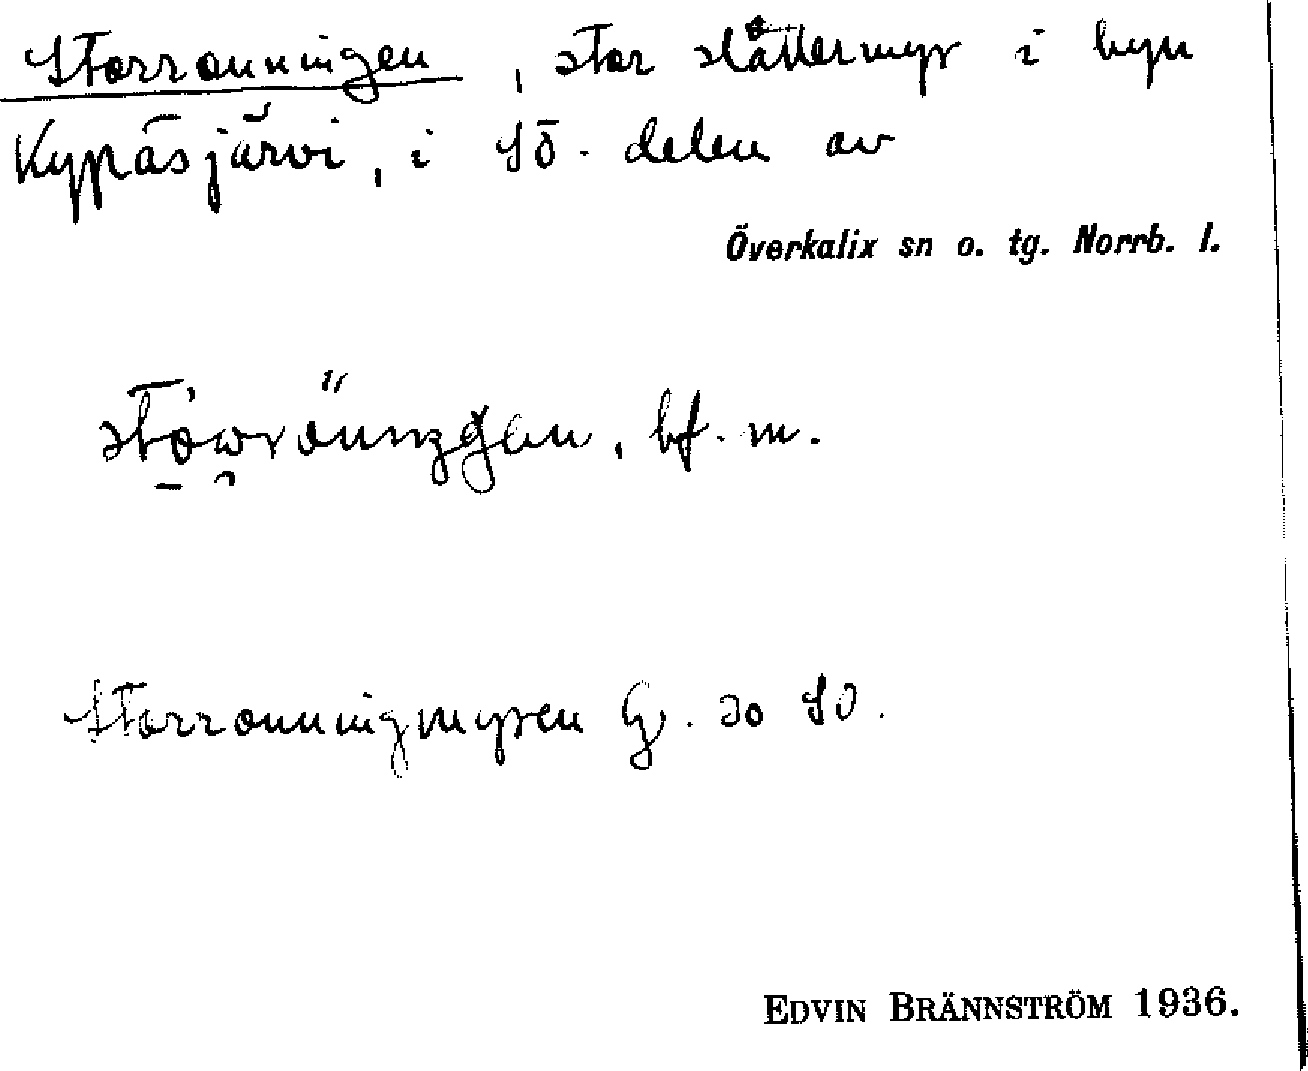 Storronningen, stor slåttermyr i byn
Kypäsjärvi, i SÖ. delen av
Överkalix sn o. tg. Norrb. l.
bf. m.
Storronningmyren G. 30 SO.
EDVIN BRÄNNSTRÖM 1936.